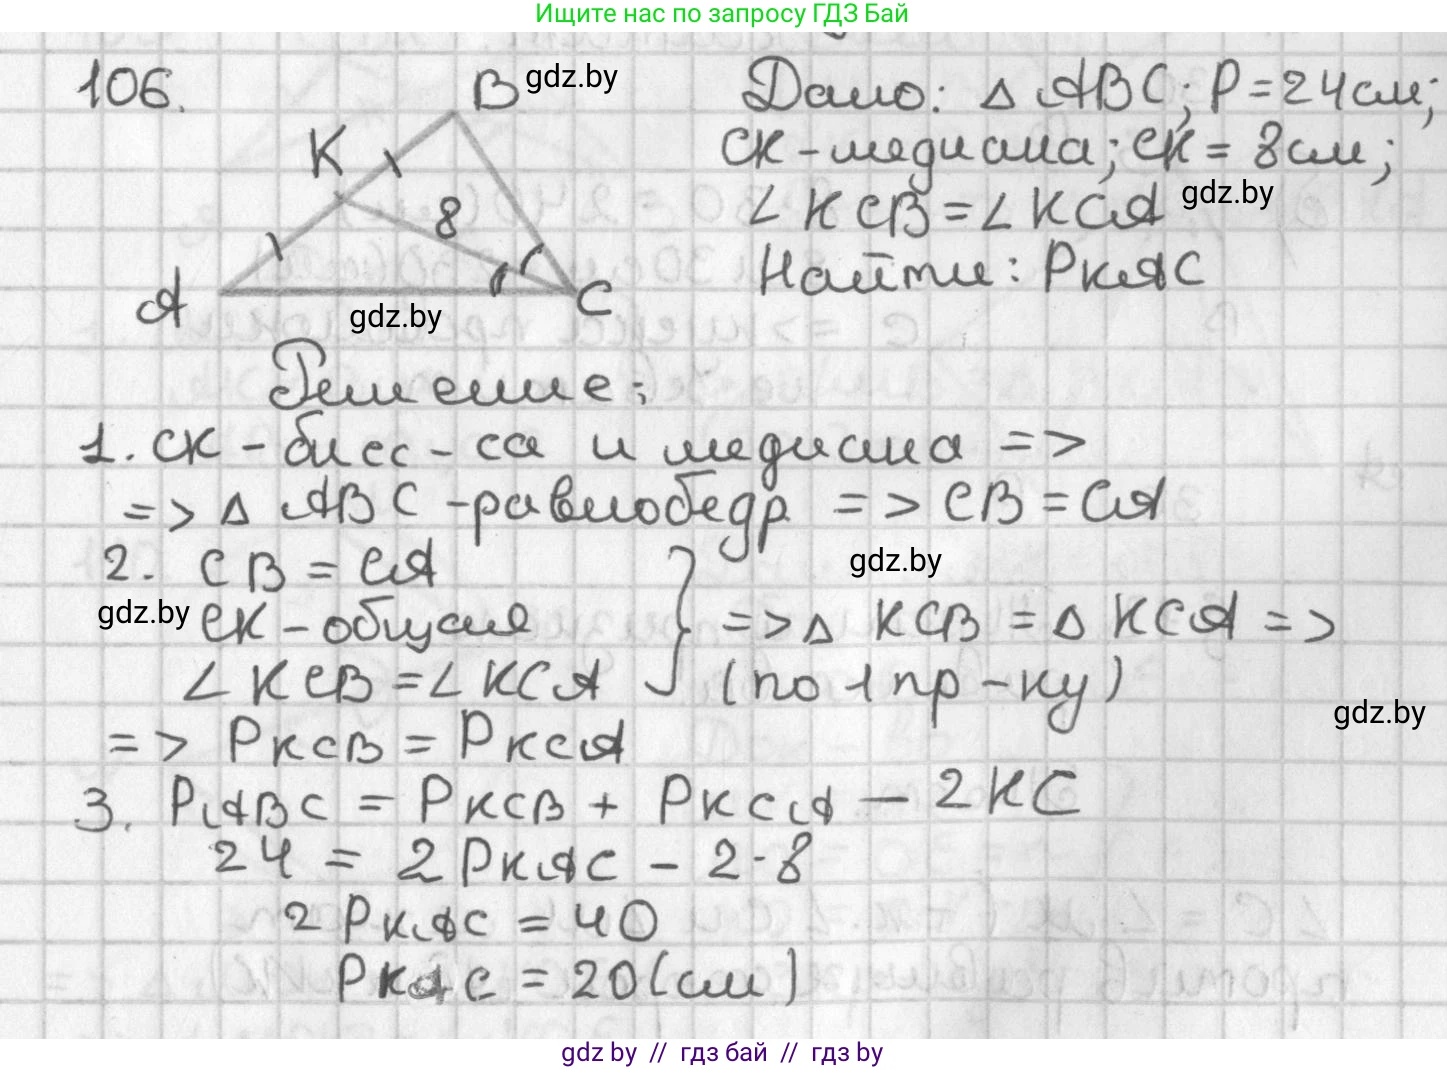 Ищите нас по запросу ГДЗ Бай
106.
B
gdz.by
K
8
A
C
gdz.by
Дано: △ ABC; P = 24 см;
CK - медиана; CK = 8 см;
gdz.by
∠KCB = ∠KCA
Найти: PKAC
Решение:
1. CK - бисс-са и медиана =>
=> △ ABC - равнобедр => CB = CA
gdz.by
2. CB = CA
gdz.by
CK - общая
∠KCB = ∠KCA
=> △ KCB = △ KCA =>
(по 1 пр-ку)
gdz.by
=> PKCB = PKCA
3. PABC = PKCB + PKCA - 2KC
24 = 2PKAC - 2·8
2PKAC = 40
PKAC = 20 (см)
gdz by // гдз бай // гдз by